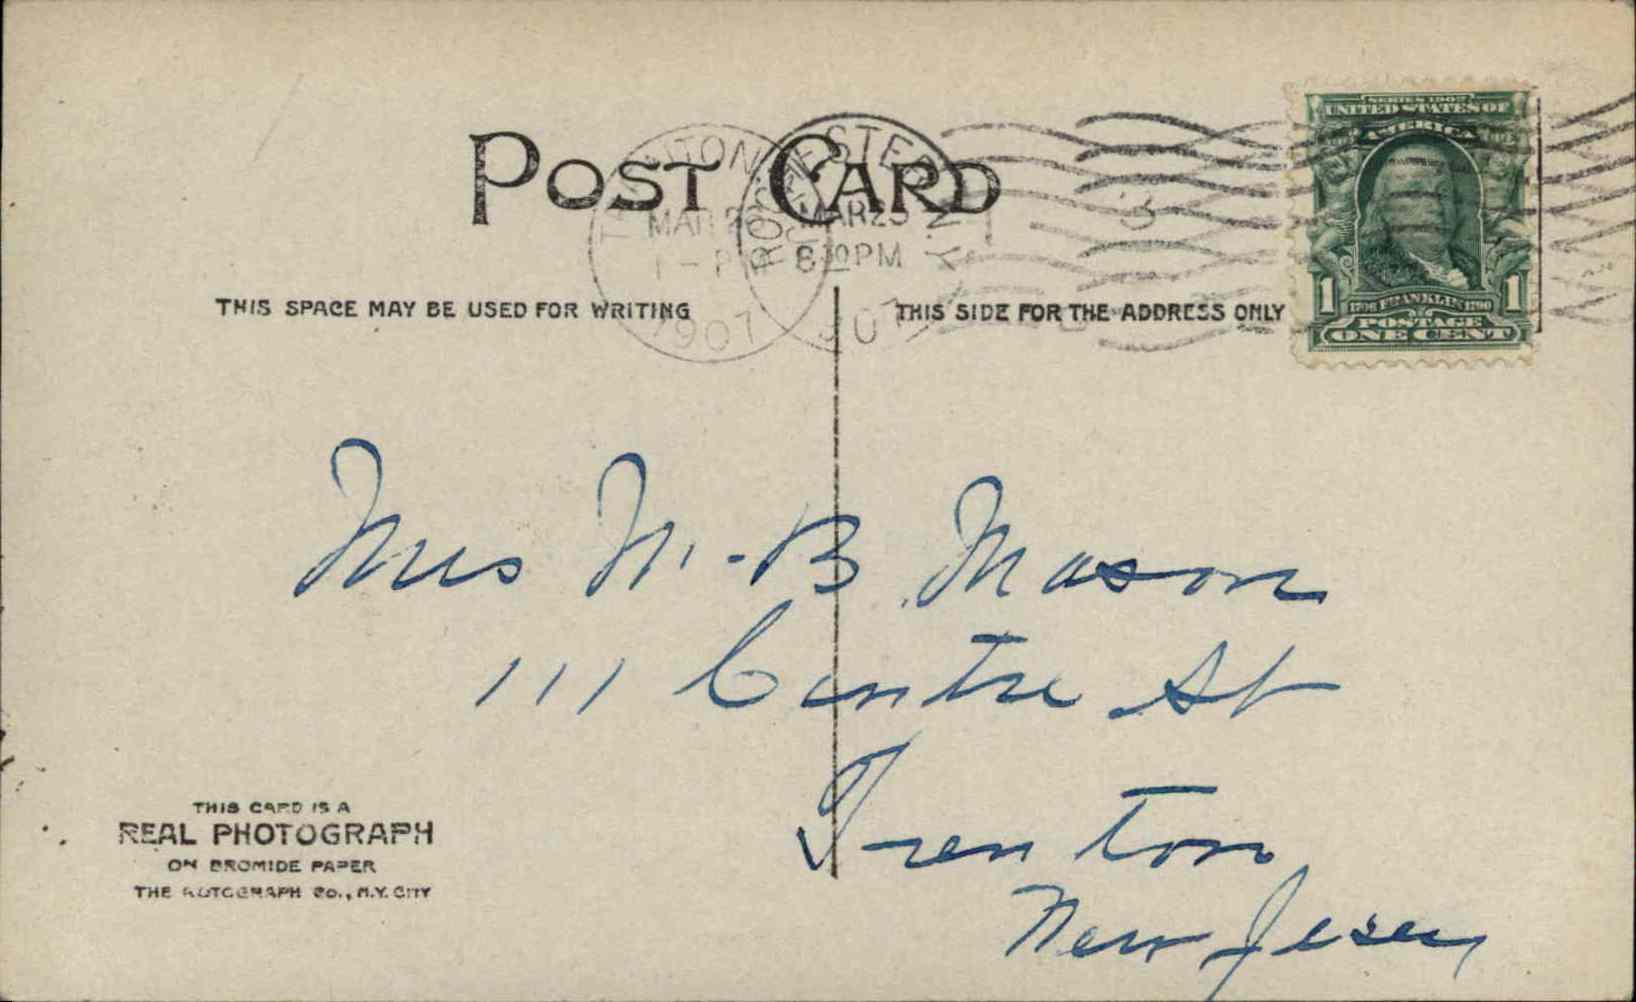 POST CARD
TRENTON
MAR 26
1 - PM
1907
ROCHESTER N.Y.
MAR 25
8 30 PM
1907
SERIES 1902
UNITED STATES OF
AMERICA
1 1706 FRANKLIN 1790 1
POSTAGE
ONE CENT
THIS SPACE MAY BE USED FOR WRITING
THIS SIDE FOR THE ADDRESS ONLY
Mrs M. B Mason
111 Centre St
Trenton
New Jersey
THIS CARD IS A
REAL PHOTOGRAPH
ON BROMIDE PAPER
THE AUTOGRAPH CO., N.Y. CITY